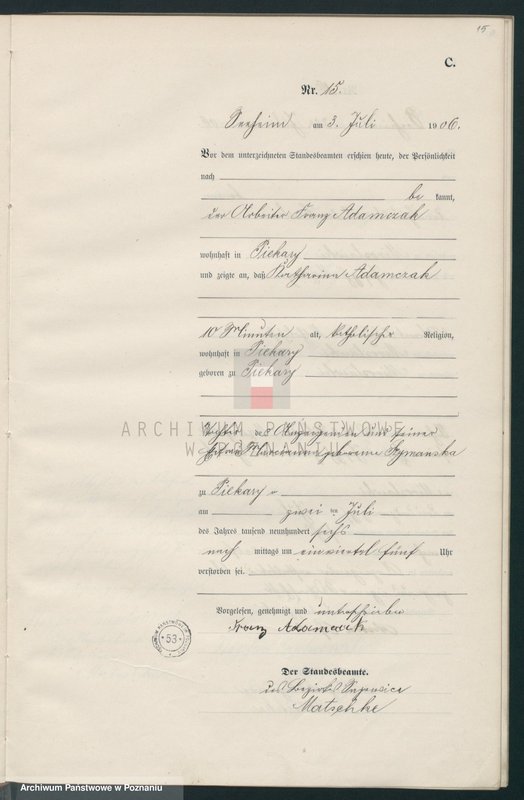 15
C.
Nr. 15.
Seeheim am 3. Juli 1906.
Vor dem unterzeichneten Standesbeamten erschien heute, der Persönlichkeit
nach
be kannt,
der Arbeiter Franz Adamczak
wohnhaft in Piekary
und zeigte an, daß Katharina Adamczak
10 Minuten alt, katholischer Religion,
wohnhaft in Piekary
geboren zu Piekary
ARCHIWUM PAŃSTWOWE
W POZNANIU
Tochter des Anzeigenden und seiner
Ehefrau Marianna geborene Szymanska
zu Piekary
am zwei ten Juli
des Jahres tausend neunhundert sechs
nach mittags um einviertel fünf Uhr
verstorben sei.
Vorgelesen, genehmigt und unterschrieben
Franz Adamczak
53
Der Standesbeamte.
des Bezirks
Matschke
Archiwum Państwowe w Poznaniu